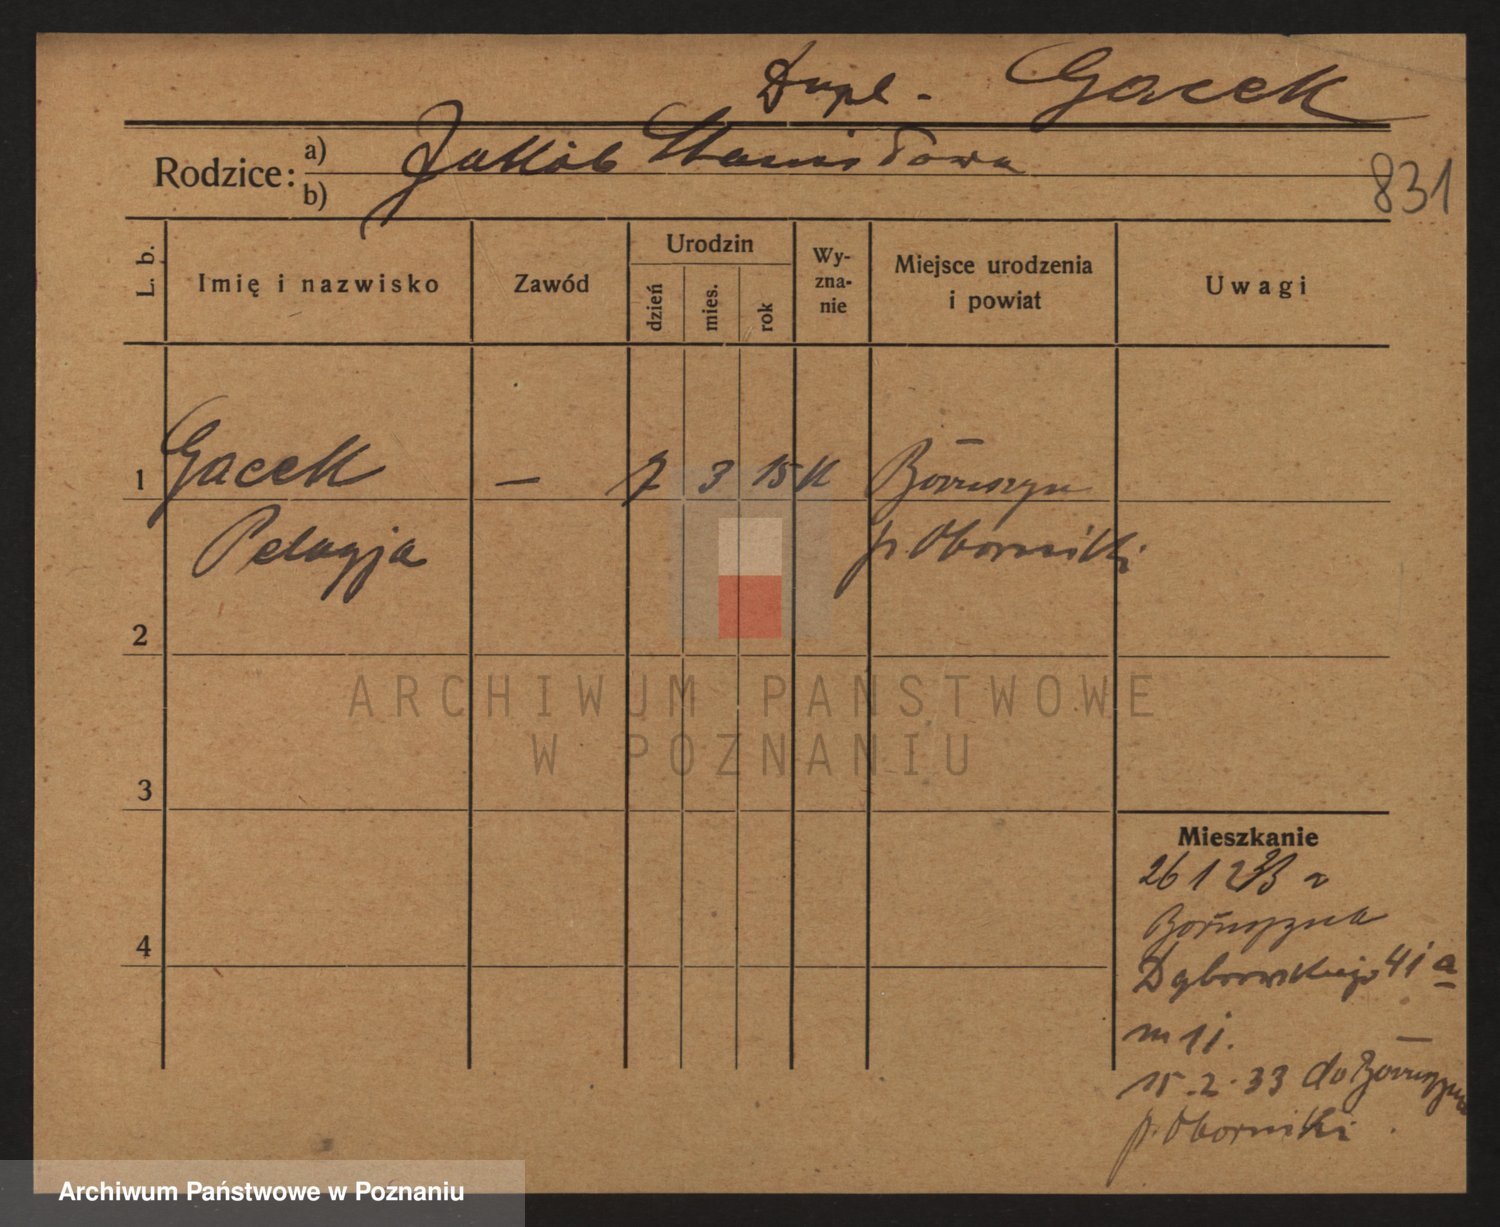 Dupl. Gacek
Rodzice: a) Jakób Stanisława
b)
831
L. b.
Imię i nazwisko
Zawód
Urodzin
dzień
mies.
rok
Wy-
zna-
nie
Miejsce urodzenia
i powiat
Uwagi
1 Gacek — 7 3 15 K Boruszyn
Pelagja p. Oborniki
2
3
4
Mieszkanie
26 1 33 z
Boruszyna
Dąbrowskiego 41 a
m 11.
15.2.33 do Boruszyna
p. Oborniki.
ARCHIWUM PAŃSTWOWE
W POZNANIU
Archiwum Państwowe w Poznaniu